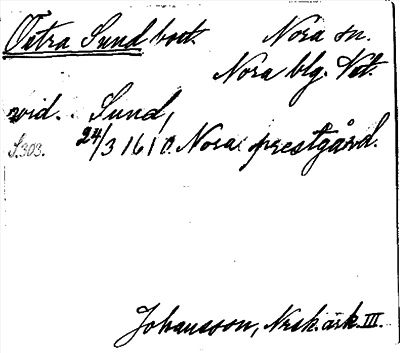 Östra Sund bort. Nora sn.
Nora blg. Vstm.
vid. Sund,
S.303. 24/3 1610. Nora prestgård.
Johansson, Norsk. ark. III.